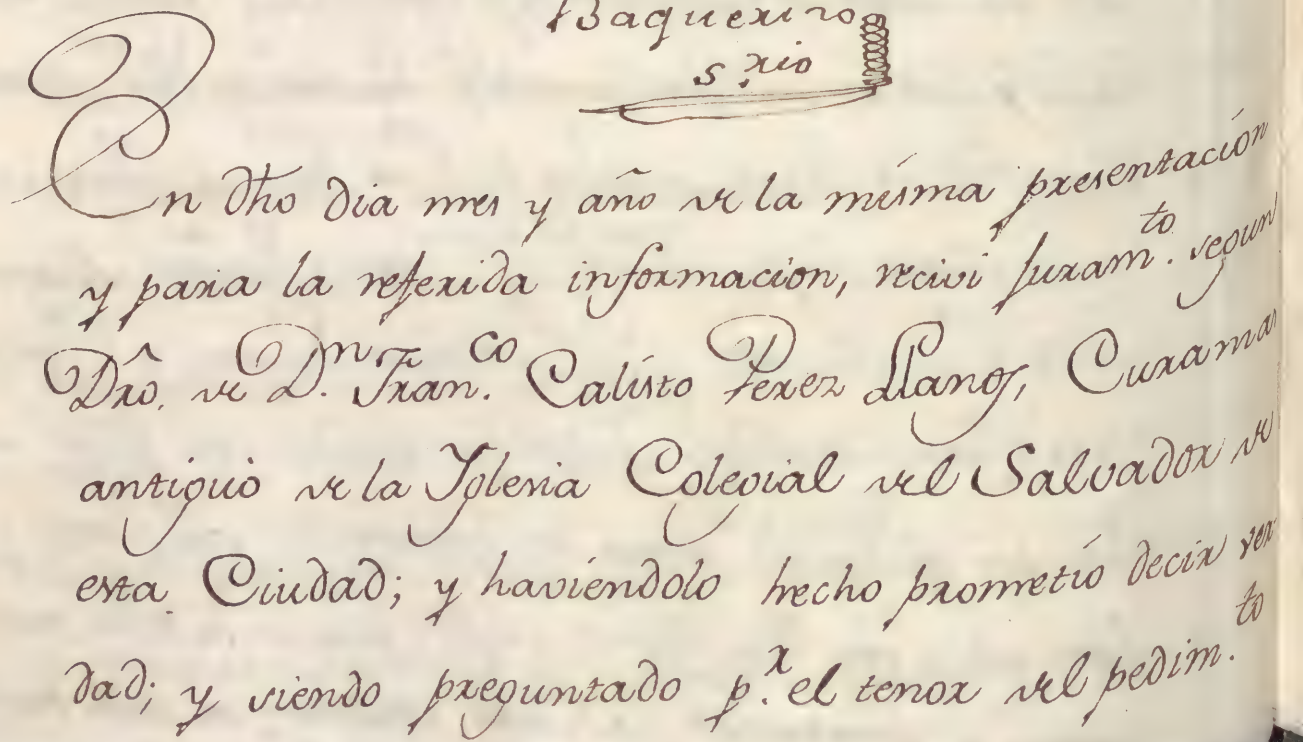 Baquerizo
s.rio
En dho dia mes y año de la misma presentación
y para la referida informacion, recivi juram.to segun
Dro. de D.n Fran.co Calisto Perez Llanos, Cura mas
antiguo de la Yglesia Colegial del Salvador de
esta Ciudad; y haviendolo hecho prometió decir ver
dad; y siendo preguntado p.r el tenor del pedim.to